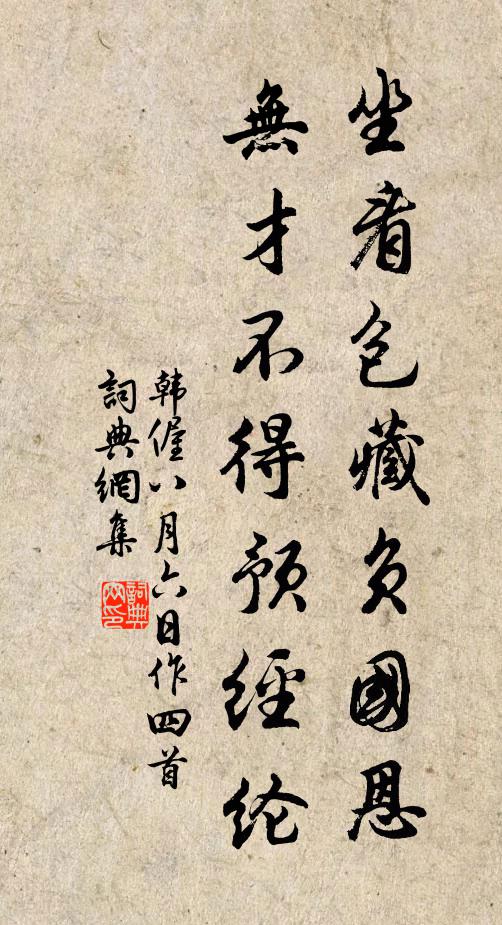 坐看包藏负國恩
無才不得预經纶
韩偓八月六日作四首
詞典網集
詞典网印